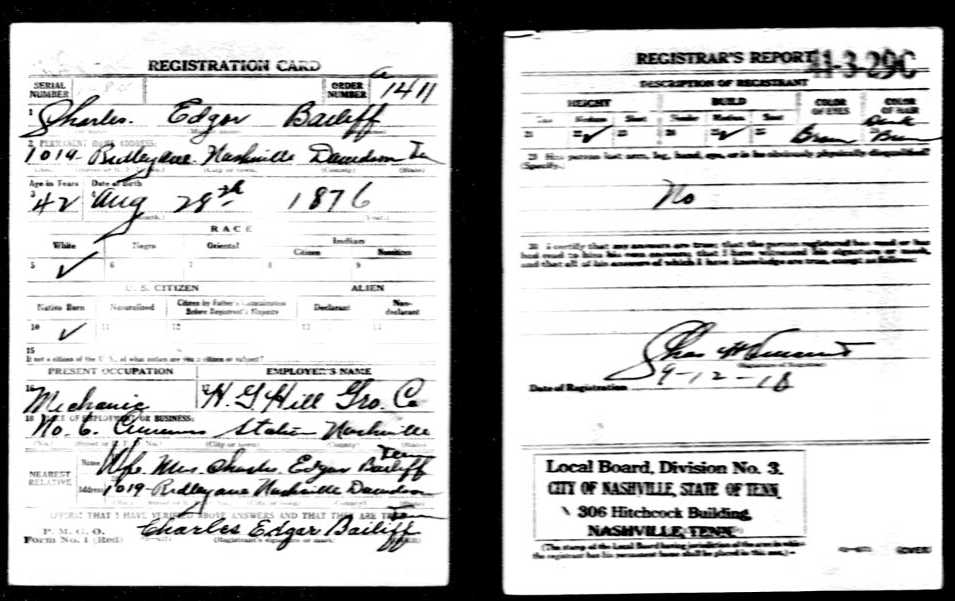 REGISTRATION CARD
SERIAL NUMBER
ORDER NUMBER A 1411
1 Charles. Edgar Bailiff
2 PERMANENT HOME ADDRESS:
1019 - Ridley ave. Nashville Davidson Ten
(City or town) (County) (State)
Age in Years Date of Birth
3 42 4 Aug 28th 1876
(Month.) (Year.)
RACE
White Negro Oriental Indian
Citizen Noncitizen
5 ✓ 6 7 8 9
U. S. CITIZEN ALIEN
Native Born Naturalized Citizen by Father's Naturalization Before Registrant's Majority Declarant Non-declarant
10 ✓ 11 12 13 14
15
If not a citizen of the U. S., of what nation are you a citizen or subject?
PRESENT OCCUPATION EMPLOYER'S NAME
16 Mechanic 17 H. G Hill Gro. Co
18 PLACE OF EMPLOYMENT OR BUSINESS:
No. 6. Station Nashville
(No.) (City or town) (County) (State)
Tenn
NEAREST RELATIVE
Name Wife Mrs. Charles. Edgar Bailiff
Address 1019 - Ridley ave Nashville Davidson
Tenn
I AFFIRM THAT I HAVE VERIFIED ABOVE ANSWERS AND THAT THEY ARE TRUE
P. M. G. O.
Form No. 1 (Red) Charles Edgar Bailiff
(Registrant's signature or mark)
REGISTRAR'S REPORT
41-3-29C
DESCRIPTION OF REGISTRANT
HEIGHT BUILD COLOR OF EYES COLOR OF HAIR
Tall Medium Short Slender Medium Stout
21 22 ✓ 23 24 25 ✓ 26 Brown Dark Brown
29 Has person lost arm, leg, hand, eye, or is he obviously physically disqualified?
(Specify.)
No
30 I certify that my answers are true; that the person registered has read or has
had read to him his own answers; that I have witnessed his signature or mark,
and that all of his answers of which I have knowledge are true, except as follows:
Chas
(Signature of Registrar)
Date of Registration 9-12-18
Local Board, Division No. 3.
CITY OF NASHVILLE, STATE OF TENN.
306 Hitchcock Building,
NASHVILLE, TENN.
(The stamp of the Local Board having jurisdiction of the area in which
the registrant has his permanent home shall be placed in this box.)
(OVER)